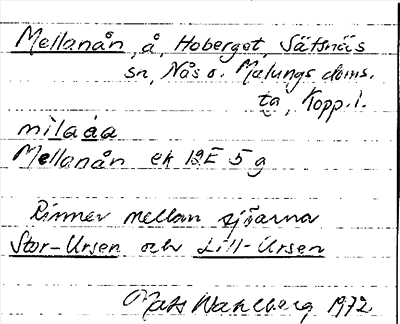 Mellanån, å, Hoberget, Sätsnäs
sn, Nås o. Malungs doms.
ta, Kopp. l.
mìlaáa
Mellanån ek 12E 5g
Rinner mellan sjöarna
Stor-Ursen och Lill-Ursen
Mats Wahlberg 1972